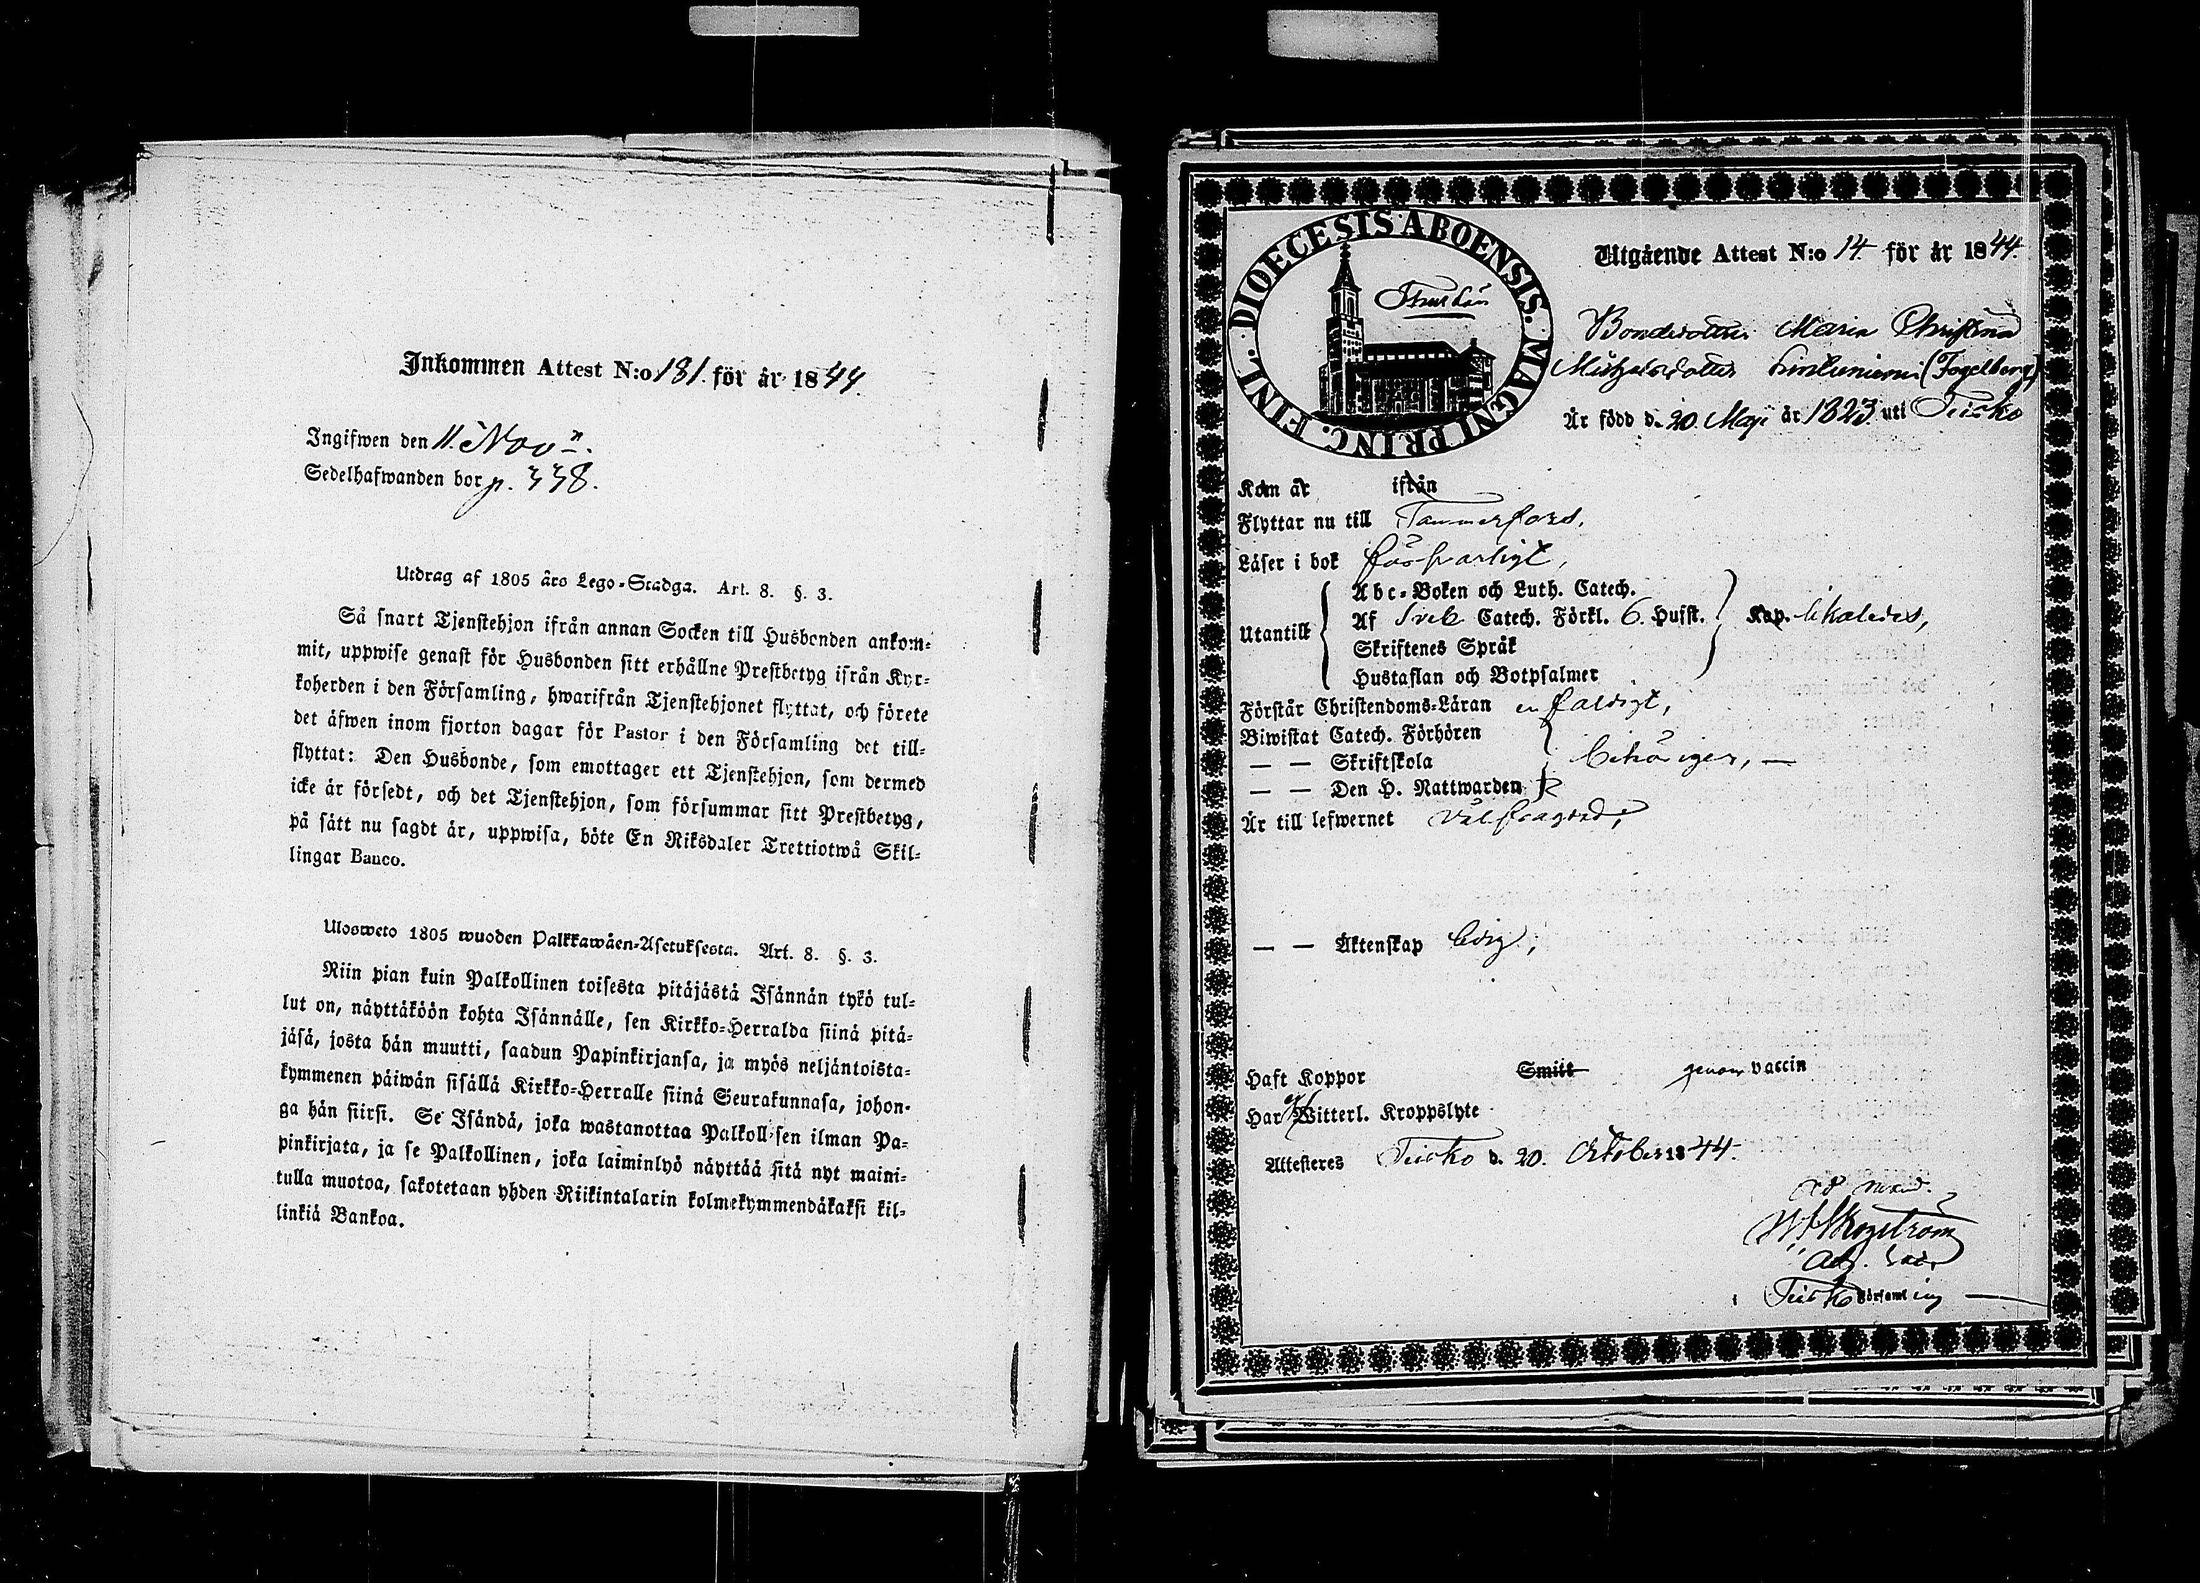 Inkommen Attest N:o 181. för år 1844.
Ingifwen den 11. Nov:
Sedelhafwanden bor p. 338.
Utdrag af 1805 års Lego-Stadga. Art. 8. §. 3.
Så snart Tjenstehjon ifrån annan Socken till Husbonden ankom-
mit, uppwise genast för Husbonden sitt erhållne Prestbetyg ifrån Kyr-
koherden i den Församling, hwarifrån Tjenstehjonet flyttat, och förete
det äfwen inom fjorton dagar för Pastor i den Församling det till-
flyttat: Den Husbonde, som emottager ett Tjenstehjon, som dermed
icke är försedt, och det Tjenstehjon, som försummar sitt Prestbetyg,
på sätt nu sagdt är, uppwisa, böte En Riksdaler Trettiotwå Skil-
lingar Banco.
Ulosweto 1805 wuoden Palkkawäen-Asetuksesta. Art. 8. §. 3.
Niin pian kuin Palkollinen toisesta pitäjästä Isännän tykö tul-
lut on, näyttäköön kohta Isännälle, sen Kirkko-Herralda siinä pitä-
jäsä, josta hän muutti, saadun Papinkirjansa, ja myös neljäntoista-
kymmenen päiwän sisällä Kirkko-Herralle siinä Seurakunnasa, johon-
ga hän siirsi. Se Isändä, joka wastanottaa Palkollisen ilman Pa-
pinkirjata, ja se Palkollinen, joka laiminlyö näyttää sitä nyt maini-
tulla muotoa, sakotetaan yhden Riikintalarin kolmekymmendäkaksi kil-
linkiä Bankoa.
DIOECESIS ABOENSIS. MAGNI PRINC. FINL.
Utgående Attest N:o 14 för år 1844.
Bondedottren Maria Christina
Michelsdotter (Fogelberg)
Är född d. 20 Maji år 1823. uti Teisko
Kom år ifrån
Flyttar nu till Tammerfors,
Läser i bok försvarligt,
Utantill
Abc-Boken och Luth. Catech.
Af Sveb. Catech. Förkl. 6. Hufst. Kap. likaledes,
Skriftenes Språk
Hustaflan och Botpsalmer
Förstår Christendoms-Läran enfaldigt,
Biwistat Catech. Förhören
— — Skriftskola behörigen, —
— — Den H. Nattwarden
Är till lefwernet välfräjdad,
— — Äktenskap ledig,
Haft Koppor Smitt genom vaccin
Har ej Witterl. Kroppslyte
Attesteres Teisko d. 20. October 1844.
Adj. Sac.
Teisko Församling